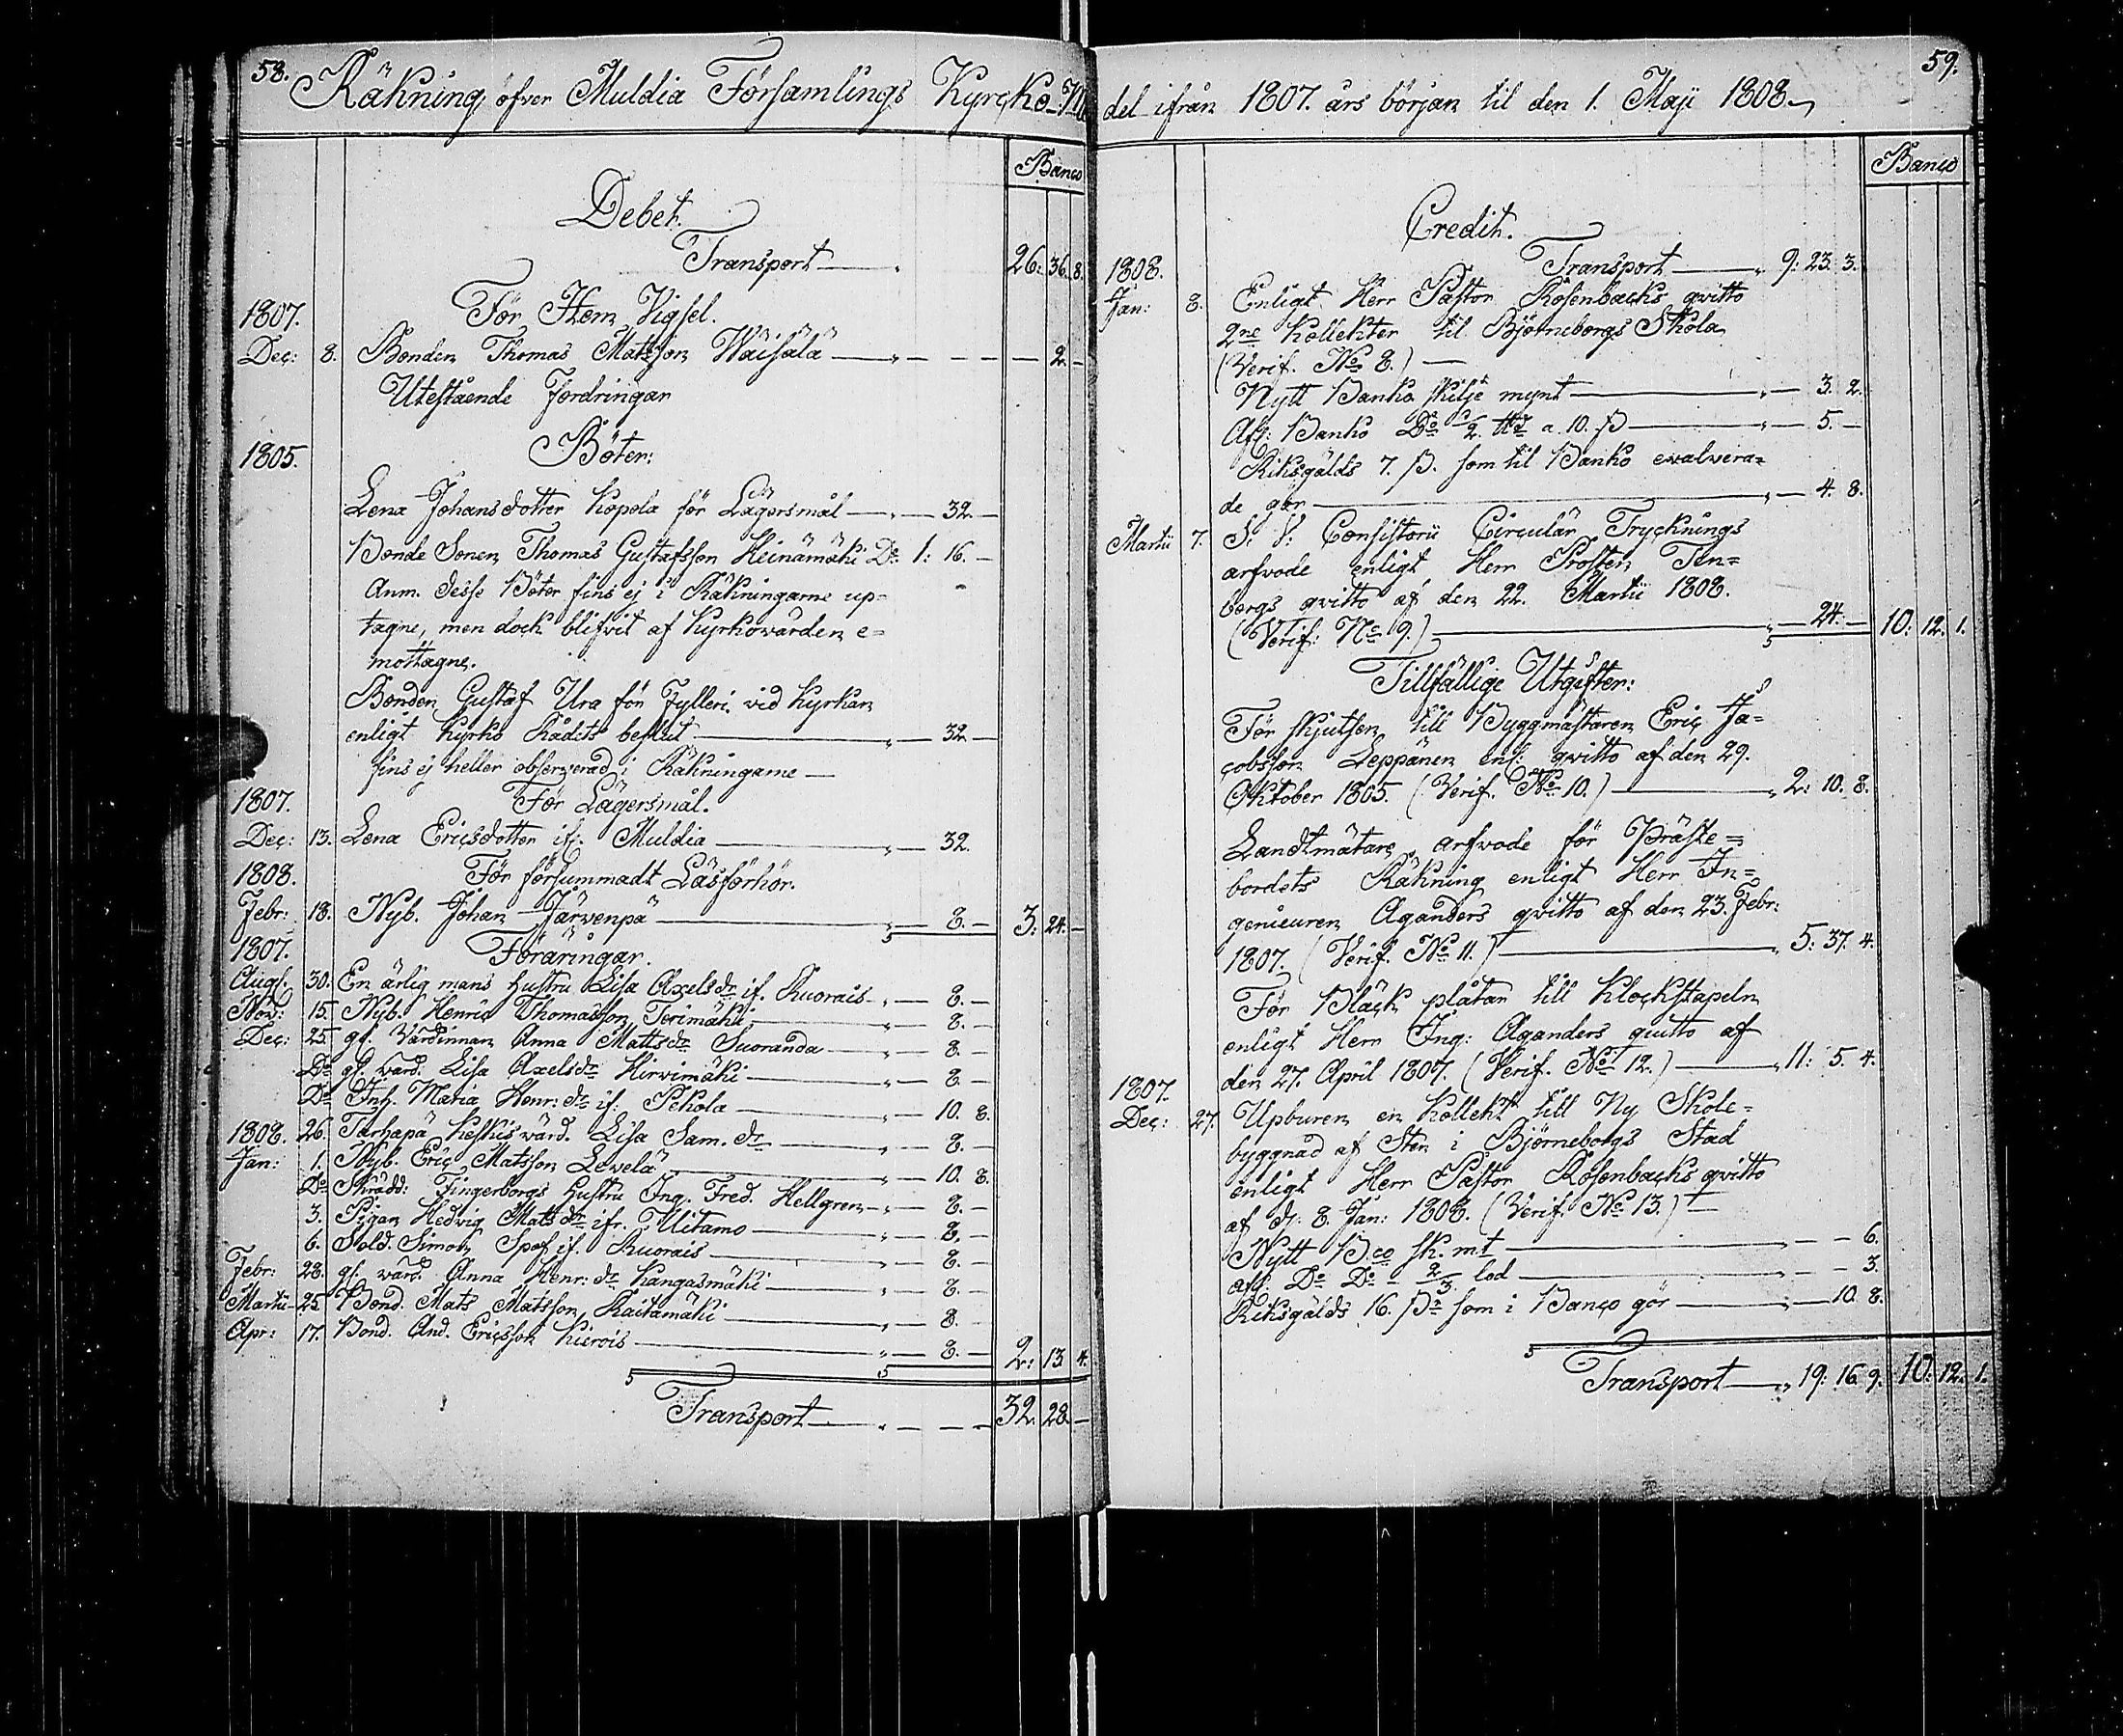 58.
Räkning öfver Muldia Församlings Kyrcko-Me
Banco
Debet.
Transport — 26: 36. 8.
1807. För Hem Vigsel.
Dec: 8. Bonden Thomas Matsson Wäisälä — 2. —
Utestående Fordringar
1805. Böter:
Lena Johansdotter Kopola för Lägersmål — 32. —
Bonde Sonen Thomas Gustafsson Heinämäki Do 1: 16. —
Anm. desse Böter fins ej i Räkningarne up=
tagne, men dock blifvit af Kyrkovärden e=
mottagne.
Bonden Gustaf Ura för Fylleri vid Kyrkan
enligt Kyrko Rådets beslut — 32 —
fins ej heller observerad i Räkningarne —
1807. För Lägersmål.
Dec: 13. Lena Ericsdotter if. Muldia — 32.
1808. För försummadt Läsförhör.
Febr: 18. Nyb. Johan Järvenpä — 8. — 3: 24. —
1807. Föräringar.
Augs. 30. En ärlig mans hustru Lisa Axelsdr if. Ruorais — 8. —
Nov: 15. Nyb. Henric Thomasson Terimäki — 8. —
Dec: 25. gf. Värdinnan Anna Mattsdr Suoranda — 8. —
Do gf. värd. Lisa Axelsdr Hirvimäki — 8. —
Do Inh. Maria Henr: dr if. Pekola — 10. 8.
1808. 26. Tarhapä Keskis värd. Lisa Sam. dr — 8. —
Jan: 1. Nyb. Eric Matsson Levelä — 10. 8.
Do Skrädd: Fingerborgs hustru Ing. Fred. Hellgren — 8. —
3. Pigan Hedvig Mats dr ifr. Ulitamo — 8. —
6. Sold. Simon Spak if. Ruorais — 8. —
Febr: 28. gf. värd. Anna Henr: dr Kangasmäki — 8. —
Martii 25. Bond. Mats Matsson Raitamäki — 8. —
Apr: 17. Bond. And. Ericsson Kierois — 8. — 2: 13. 4.
Transport — 32. 28. —
59.
del ifrån 1807. års början til den 1. Maji 1808.
Banco
Credit.
1808. Transport — 9: 23. 3.
Jan: 8. Enligt Herr Pastor Rosenbacks qvitto
2ne Kollekter til Björneborgs Skola
(Verif. No 8.) —
Nytt Banko skilje mynt — 3. 2.
Afg: Banko Do 2. a. 10. ß — 5. —
Riksgälds 7. ß. som til Banko evalvera=
de gör — 4. 8.
Martii 7. S. V: Consistorii Circulär Trycknings
arfvode enligt Herr Prosten Ten=
bergs qvitto af den 22. Martii 1808.
(Verif: No 9.) — 24. — 10: 12. 1.
Tillfällige Utgifter:
För skjutsen till Byggmästaren Eric Ja=
cobsson Leppänen enl: qvitto af den 29.
Oktober 1805. (Verif. No 10.) — 2: 10. 8.
Landtmätare arfvode för Präste=
bordets Räkning enligt Herr In=
genieuren Aganders qvitto af den 23. Febr:
1807. (Verif. No 11.) — 5: 37. 4.
För Bläck plåtar till Klockstapeln
enligt Herr Ing: Aganders qvitto af
den 27. April 1807. (Verif. No 12.) — 11: 5. 4.
1807.
Dec: 27. Upburen en Kollekt till Ny Skole=
byggnad af Sten i Björneborgs Stad
enligt Herr Pastor Rosenbacks qvitto
af d. 8. Jan: 1808. (Verif. No 13.) —
Nytt B.co sk. mt — 6.
afg. Do Do — 2/3 lod — 3.
Riksgälds 16. ß som i Banco gör — 10. 8.
Transport — 19: 16. 9. 10: 12. 1.